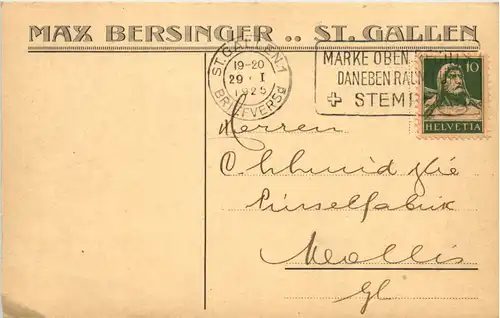 MAX BERSINGER .. ST. GALLEN
ST. GALLEN. 1
19-20
29 · I
1925
BRIEFVERSd
MARKE OBEN
DANEBEN
+ STEM
10
HELVETIA
Herren
Schmid
Pinselfabrik
Mollis
Gl